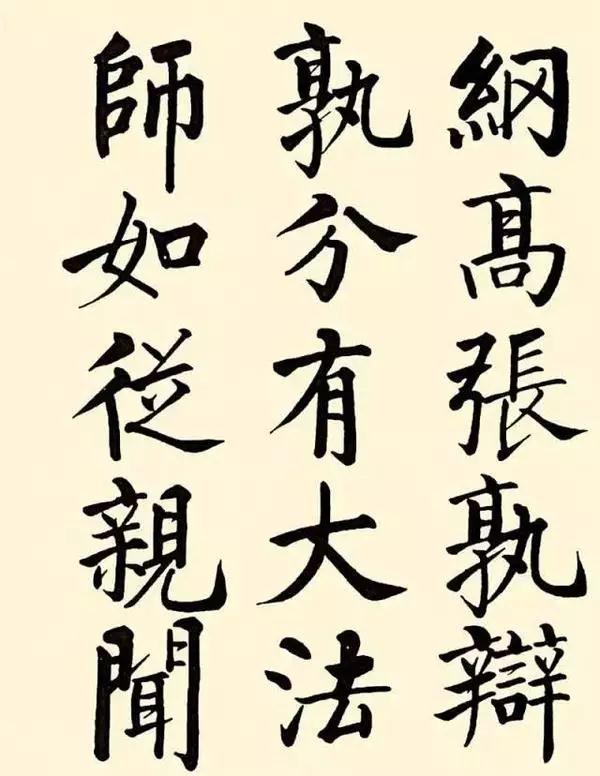 綱高張孰辯
孰分有大法
師如從親聞